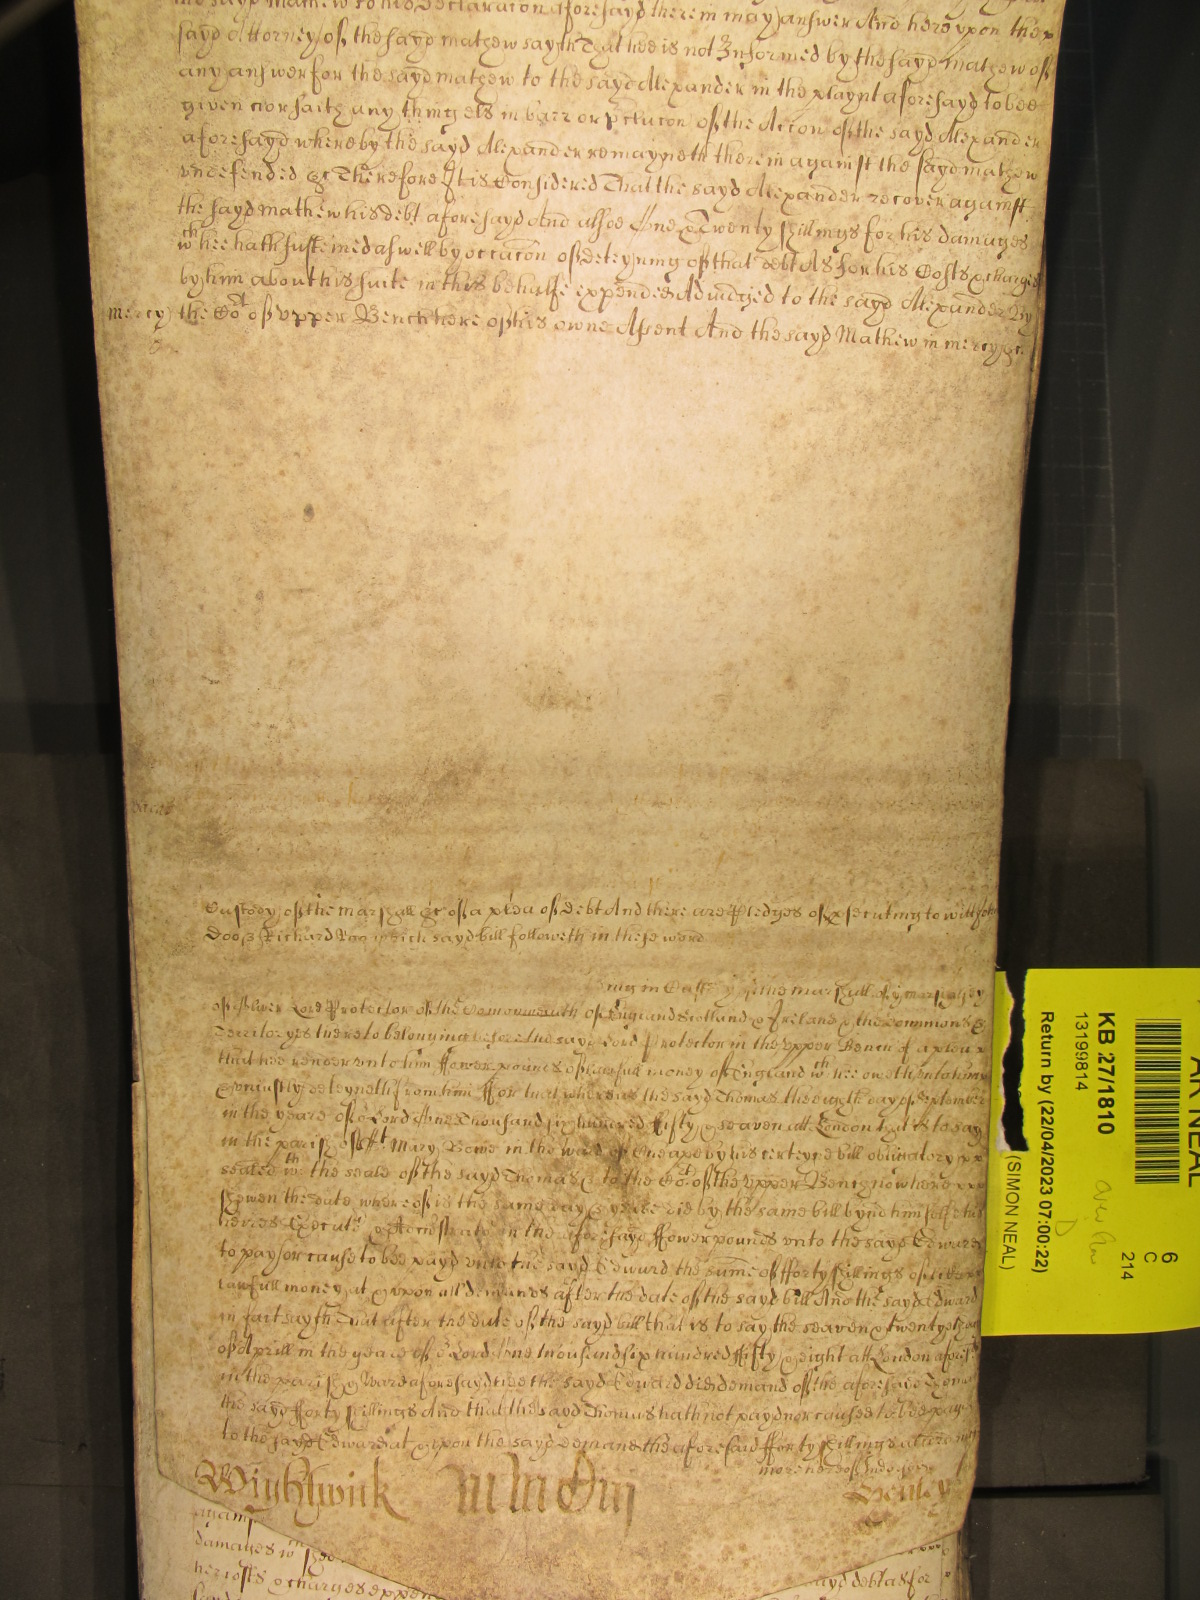 the sayd Mathew to his Declaracon aforesayd therein may answer And hereupon the
sayd Attorney of the sayd mathew sayth That hee is not Informed by the sayd mathew of
any answer for the sayd mathew to the sayd Alexander in the playnt aforesayd to bee
given nor saith any thing els in barr or of the Accon of the sayd Alexander
aforesayd whereby the sayd Alexander remayneth therein against the sayd mathew
undefended &c Therefore It is Considered That the sayd Alexander recover against
the sayd mathew his debt aforesayd And alsoe One & Twenty shillings for his damages
wch hee hath susteined aswell by occacon of deteyning of that debt As for his Costs & charges
by him about his suite in this behalfe expended Adiudged to the sayd Alexander By
mercy the Cot of upper Bench here of his owne Assent And the sayd Mathew in mercy &c
Custody of the marshall &c of a plea of debt And there are Pledges of psecuting to witt John
Doo & Richard Roo which sayd bill followeth in these word
being in Custody of the marshall of ye marshalsey
of Oliver Lord Protector of the Comonwealth of England Scotland & Ireland & the dominions &
Territoryes thereto belonging before the sayd Lord Protector in the upper Bench of a plea
that hee render unto him ffower pounds of lawfull money of England wch hee oweth unto him
& uniustly deteyneth from him ffor that whereas the sayd Thomas the day of September
in the yeare of or Lord One Thousand six hundred ffifty & seaven att London that is to say
in the parish of St Mary Bowe in the ward of Cheape by his certeyne bill obligatory
sealed wth the seale of the sayd Thomas & to the Cot of the upper Bench now here
shewen the date whereof is the same day & yeare did by the same bill bynd himselfe his
heires Executrs & Administrators in the aforesayd ffower pounds unto the sayd Edward
to pay or cause to bee payd unto the sayd Edward the sume of fforty shillings of like
lawfull money at & upon all demands after the date of the sayd bill And the sayd Edward
in fact sayth That after the date of the sayd bill that is to say the seaven & twentyeth day
of Aprill in the yeare of or Lord One thousand six hundred ffifty & eight att London aforesd
in the parish & Ward aforesayd hee the sayd Edward did demand of the aforesaid Thomas
the sayd fforty shillings And that the sayd Thomas hath not payd nor caused to bee payd
to the sayd Edward at & upon the sayd demand the aforesaid fforty shillings
more hereof
Wightwick
Henley
damages wch hee
her costs & charges expen
sayd debt as for
AR NEAL
KB 27/1810
13199814
Return by (22/04/2023 07:00:22)
(SIMON NEAL)
6
C
214